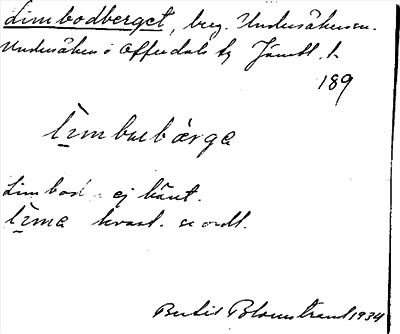 Limbodberget, berg. Undersåkersm.
Undersåker o Offerdals tg Jämtl. l.
189
limbusbärge
Limbod- ej känt.
lime kvast. se ordl.
Bertil Blomstrand 1934